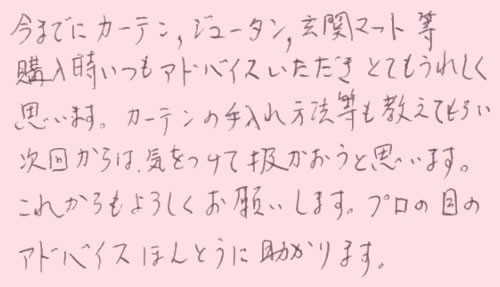 今までに カーテン, ジュータン, 玄関マット 等
購入時いつもアドバイスいただき とてもうれしく
思います。 カーテンの手入れ方法等も教えてもらい
次回からは、気をつけて扱かおうと思います。
これからもよろしくお願いします。プロの目の
アドバイスほんとうに助かります。